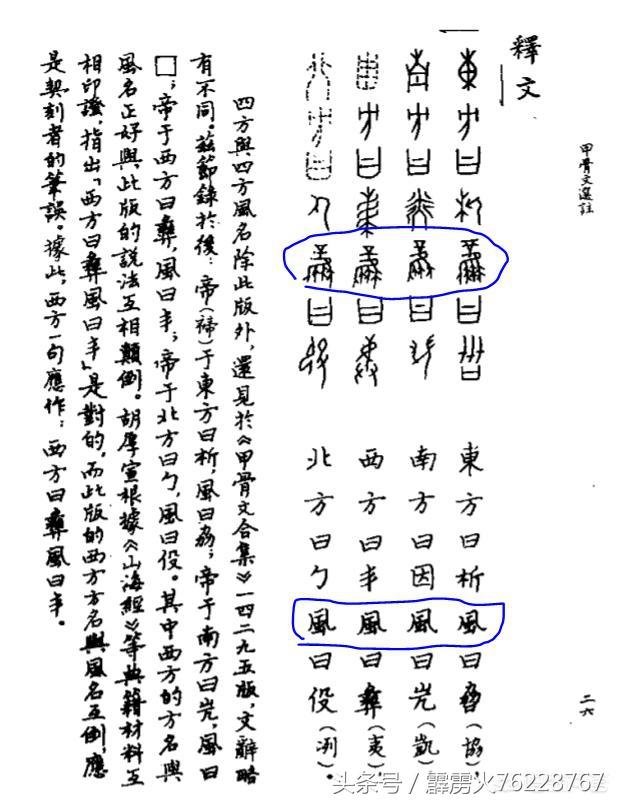 甲骨文選註
二六
釋文
東方曰析風曰（協）。
南方曰因風曰（凱）。
西方曰丰風曰彝（夷）。
北方曰勹風曰役（冽）。
四方與四方風名除此版外，還見於《甲骨文合集》一四二九五版，文辭略
有不同。茲節錄於後：帝（禘）于東方曰析，風曰劦；帝于南方曰，風曰
□；帝于西方曰彝，風曰丰；帝于北方曰勹，風曰役。其中西方的方名與
風名正好與此版的說法互相顛倒。胡厚宣根據《山海經》等典籍材料互
相印證，指出「西方曰彝風曰丰」是對的，而此版的西方方名與風名互倒，應
是契刻者的筆誤。據此，西方一句應作：西方曰彝風曰丰。
头条号 / 霹雳火76228767